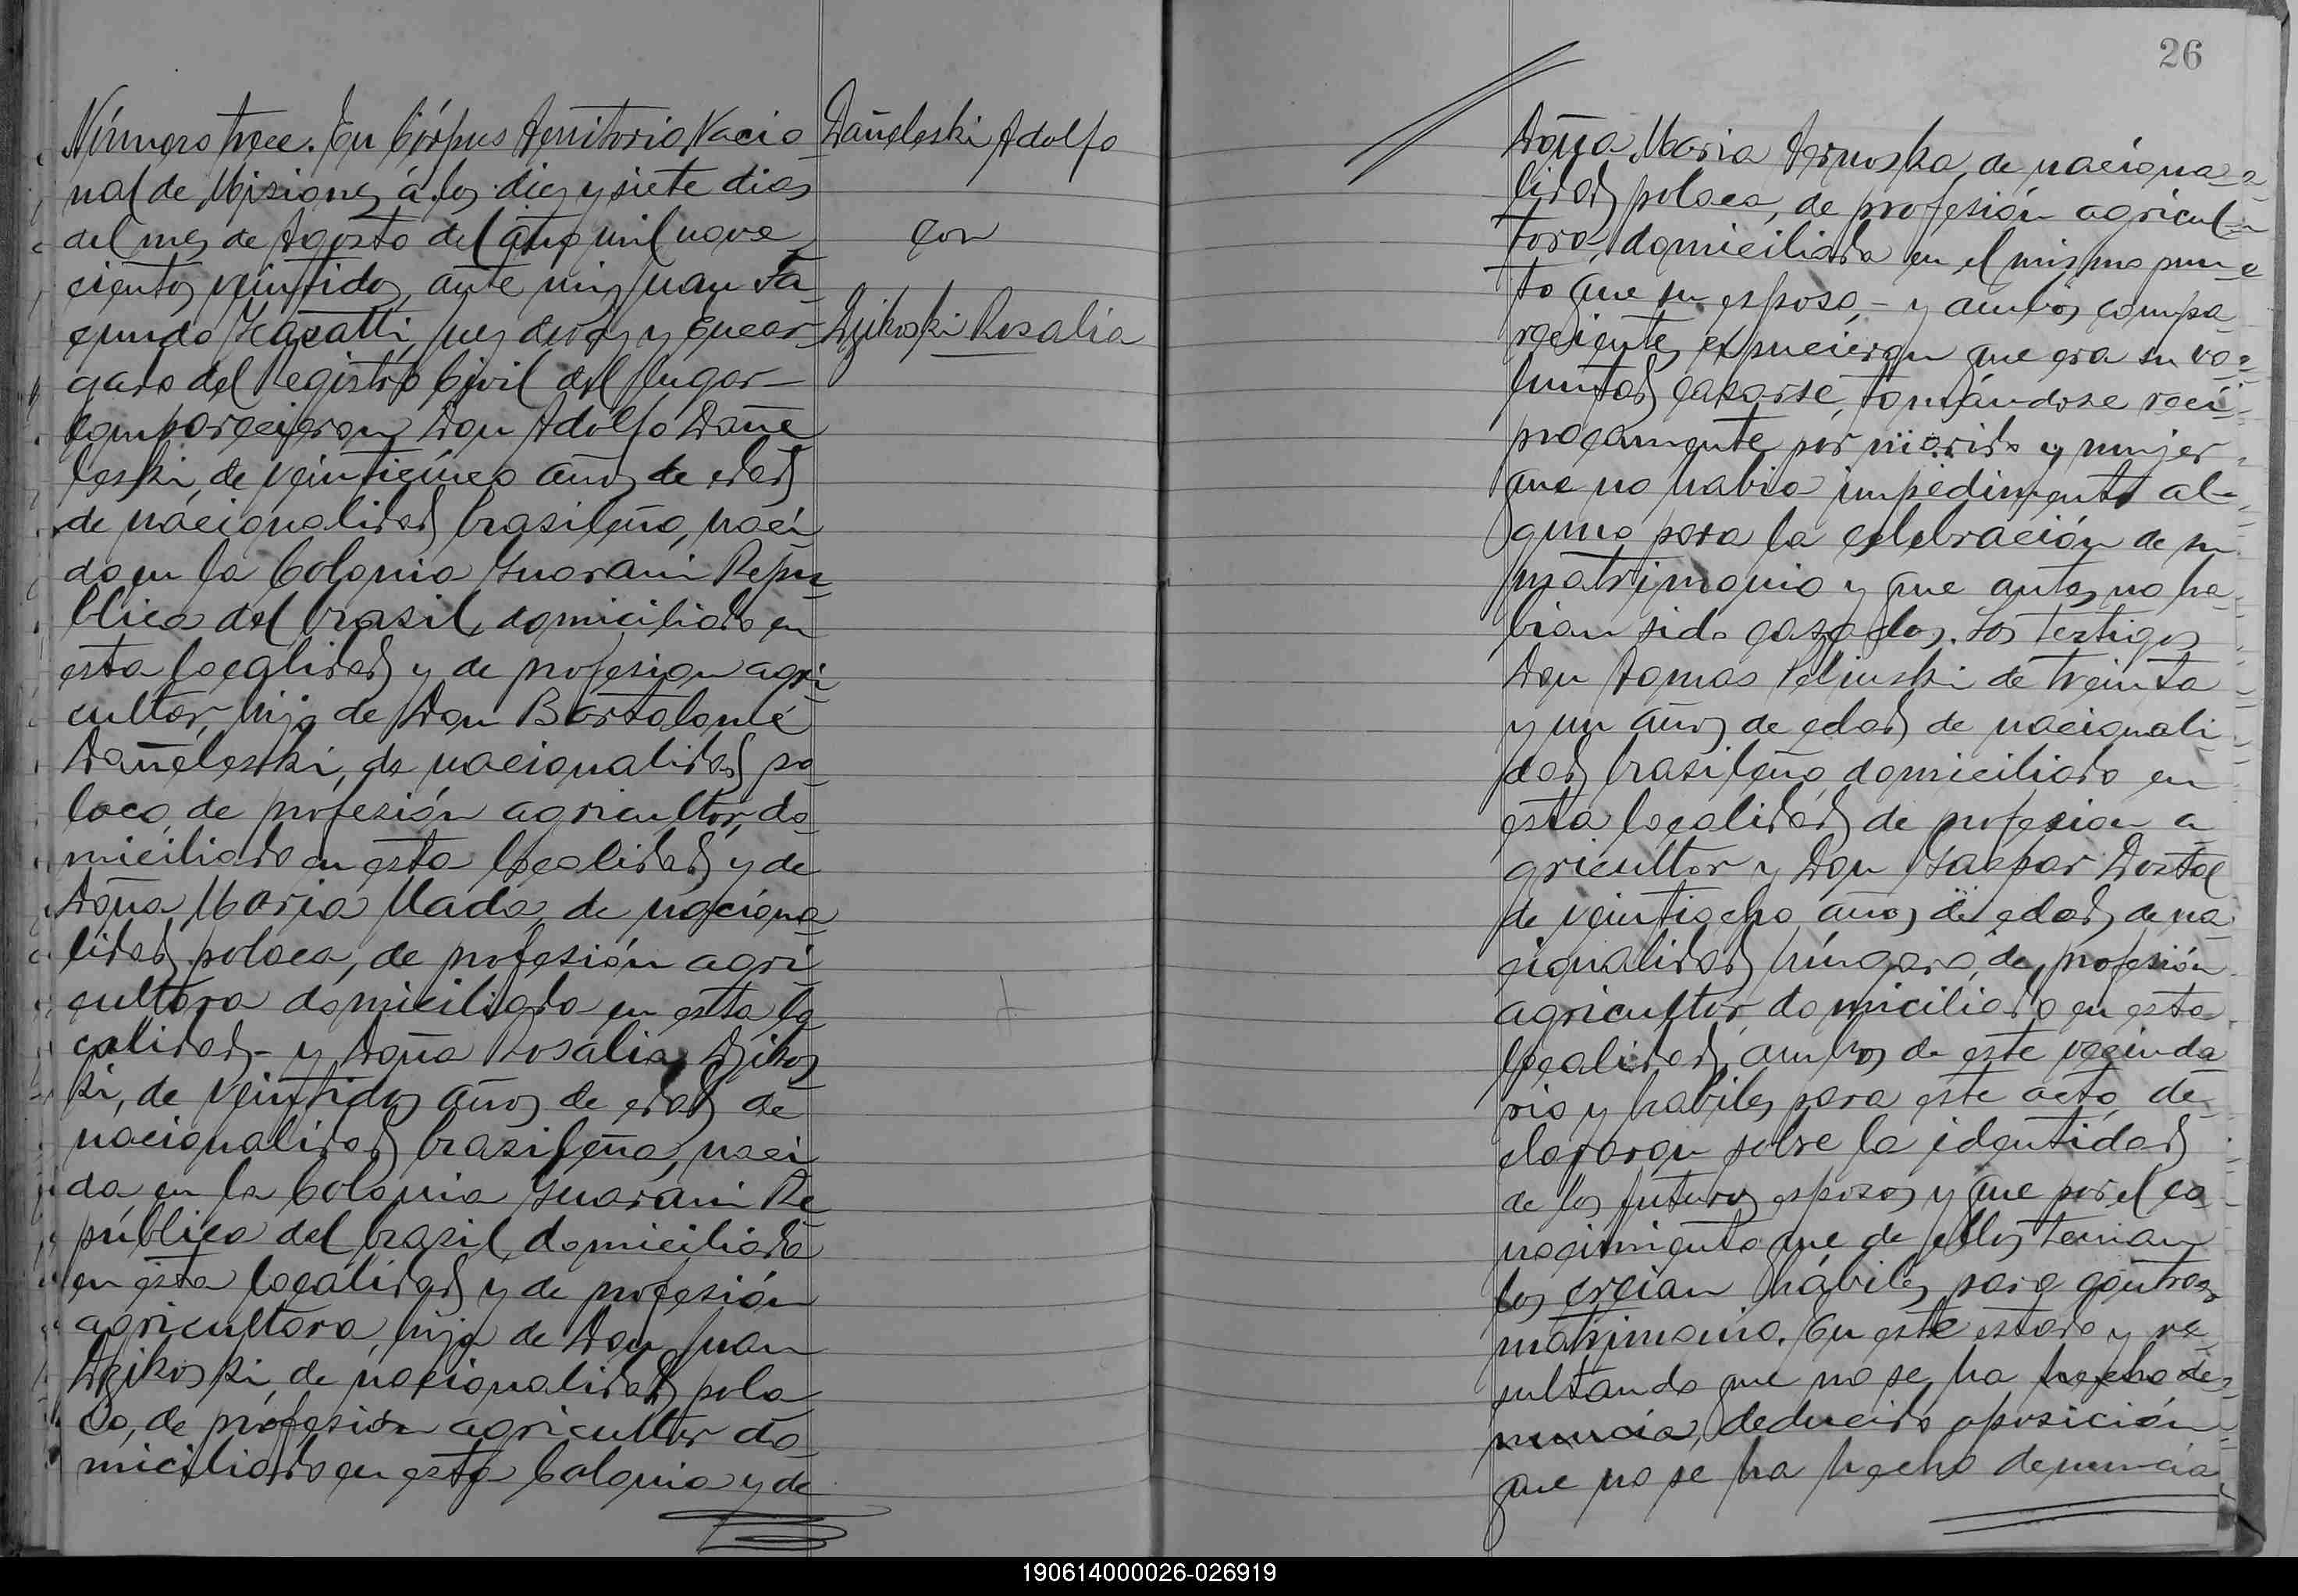 Número trece. En Córpus Territorio Nacio
nal de Misiones, á los diez y siete dias
del mes de Agosto del año mil nove
cientos veintidos, ante mi, Juan Fa
cundo Zacatti, Juez de Paz y Encar
gado del Registro Civil del lugar—
comparecieron Don Adolfo Dañe
leski, de veinticinco años de edad
de nacionalidad brasileño, naci
do en la Colonia Guarani Repu
blica del Brasil, domiciliado en
esta localidad y de profesion agri
cultor, hijo de Don Bartolomé
Dañeleski, de nacionalidad po
laca, de profesión agricultor, do
miciliado en esta localidad, y de
Doña Maria Mada, de naciona
lidad polaca, de profesión agri
cultora domiciliada en esta lo
calidad,- y Doña Rosalia Dzikos
ki, de veintidos años de edad de
nacionalidad brasileña, naci
da en la Colonia Guarani Re
pública del Brasil, domiciliada
en esta localidad y de profesión
agricultora, hija de Don Juan
Dzikoski, de nacionalidad pola
ca, de profesión agricultor do
miciliado en esta Colonia y de
Dañeleski Adolfo
con
Dzikoski Rosalia
26
Doña Maria, de naciona
lidad polaca, de profesión agricul
tora, domiciliada en el mismo pun
to que su esposo,- y ambos compa
recientes expucieron que era su vo
luntad casarse, tomándose reci
procamente por marido y mujer
que no habia impedimento al-
guno para la celebración de su
matrimonio y que antes no ha
bian sido casados. Los testigos
Don Tomas Pelinski de treinta
y un años de edad, de nacionali
dad brasileño, domiciliado en
esta localidad, de profesion a
gricultor y Don Gaspar Dostal
de veintiocho años de edad, de na
cionalidad húngaro, de profesión
agricultor, domiciliado en esta
localidad, ambos de este vecinda
rio y habiles para este acto, de
clararon sobre la identidad
de los futuros esposos y que por el co
nocimiento que de ellos tenian
los creian hábiles para contraer
matrimonio. En este estado y re
sultando que no se ha hecho de
nuncia, deducido oposición
que no se ha hecho denuncia
190614000026-026919